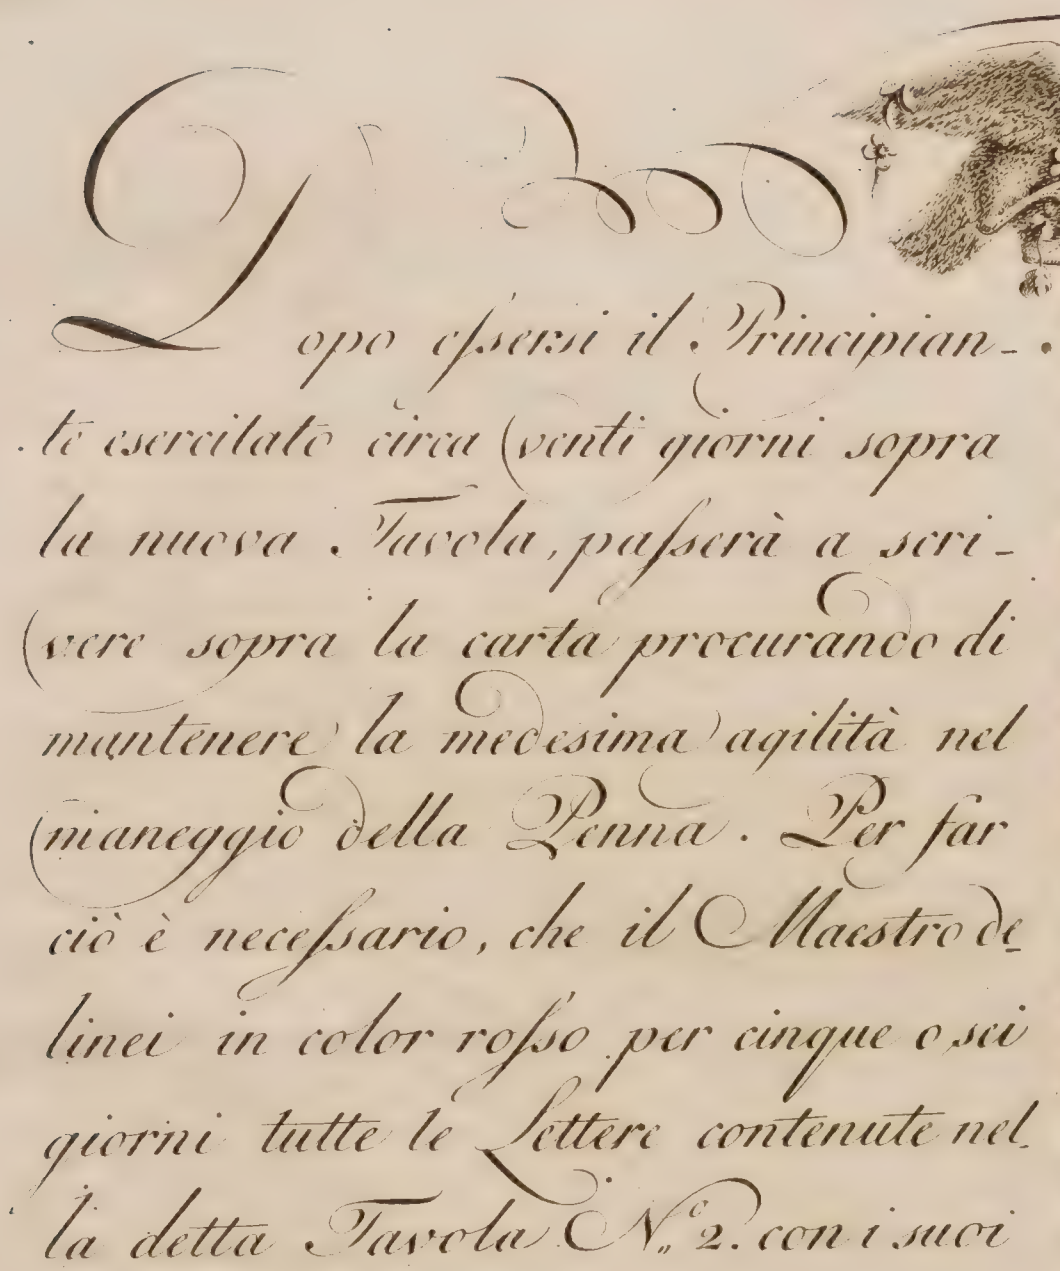 Dopo eſsersi il Principian-
te esercitato circa venti giorni sopra
la nuova Tavola, paſserà a scri-
vere sopra la carta procurando di
mantenere la medesima agilità nel
maneggio della Penna. Per far
ciò è neceſsario, che il Maestro de-
linei in color roſso per cinque o sei
giorni tutte le Lettere contenute nel-
la detta Tavola N.º 2. con i suoi